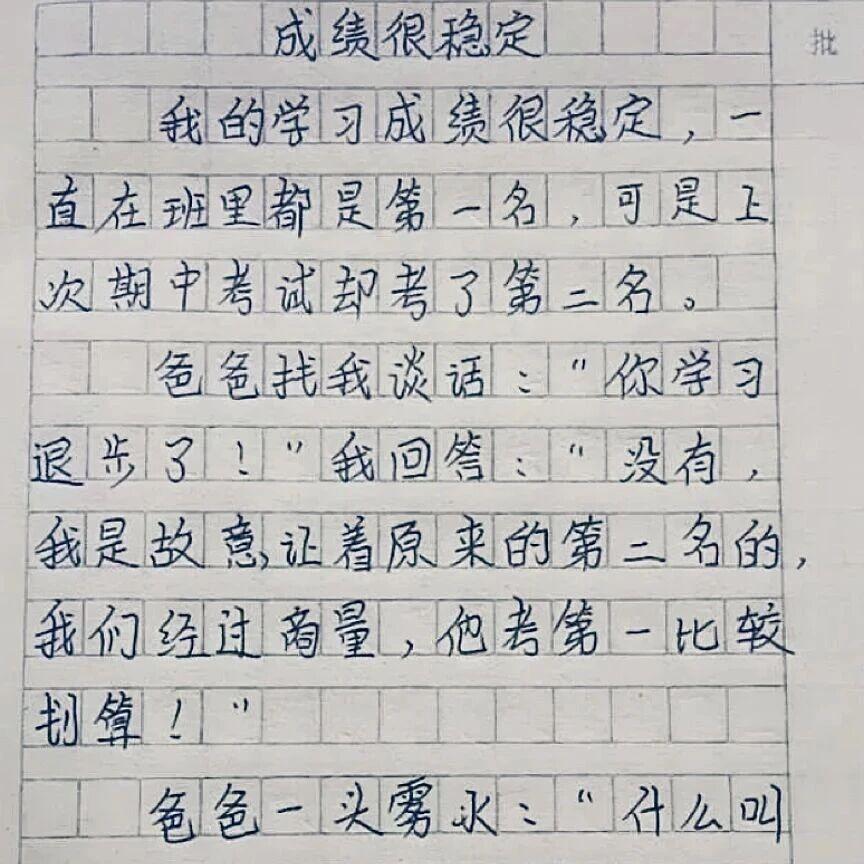 成绩很稳定
批
我的学习成绩很稳定，一
直在班里都是第一名，可是上
次期中考试却考了第二名。
爸爸找我谈话：“你学习
退步了！”我回答：“没有，
我是故意，让着原来的第二名的，
我们经过商量，他考第一比较
划算！”
爸爸一头雾水：“什么叫